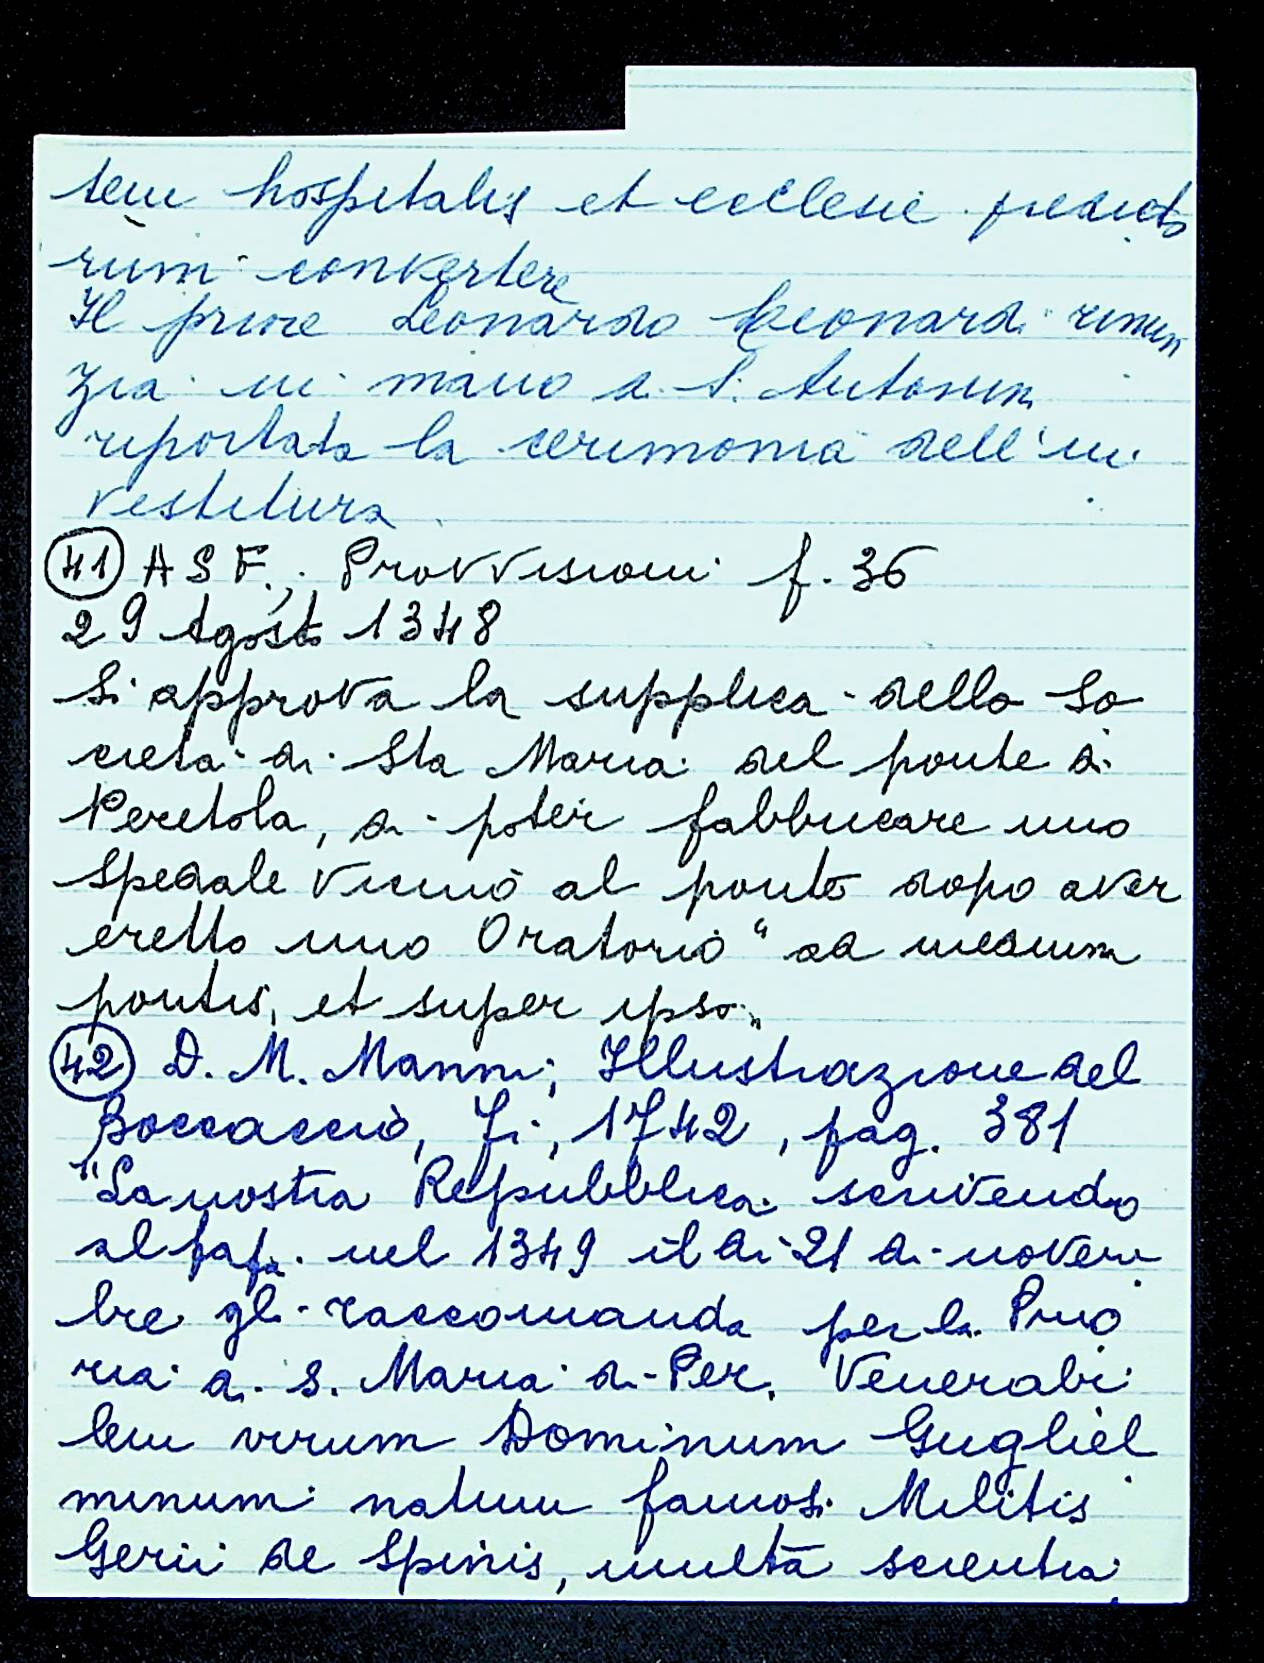 tem hospitalis et ecclesie predicto
rum convertere
Il priore Leonardo Leonardi rinun
zia in mano a S. Antonin
riportata la cerimonia dell'in
vestitura
(41) A S F.; Provvisioni f. 36
29 Agosto 1348
Si approva la supplica della So
cieta di Sta Maria del ponte a
Peretola, di poter fabbricare uno
Spedale vicino al ponte dopo aver
eretto uno Oratorio "ad medium
pontis, et super ipso"
(42) D. M. Manni; Illustrazione del
Boccaccio, Fi, 1742, pag. 381
"La nostra Repubblica scrivendo
al papa nel 1349 il di 21 di novem
bre gli raccomanda per la Prio
ria di S. Maria a Per. Venerabi
lem virum Dominum Gugliel
minum natum famosi Militis
Gerii de Spinis, multa scientia